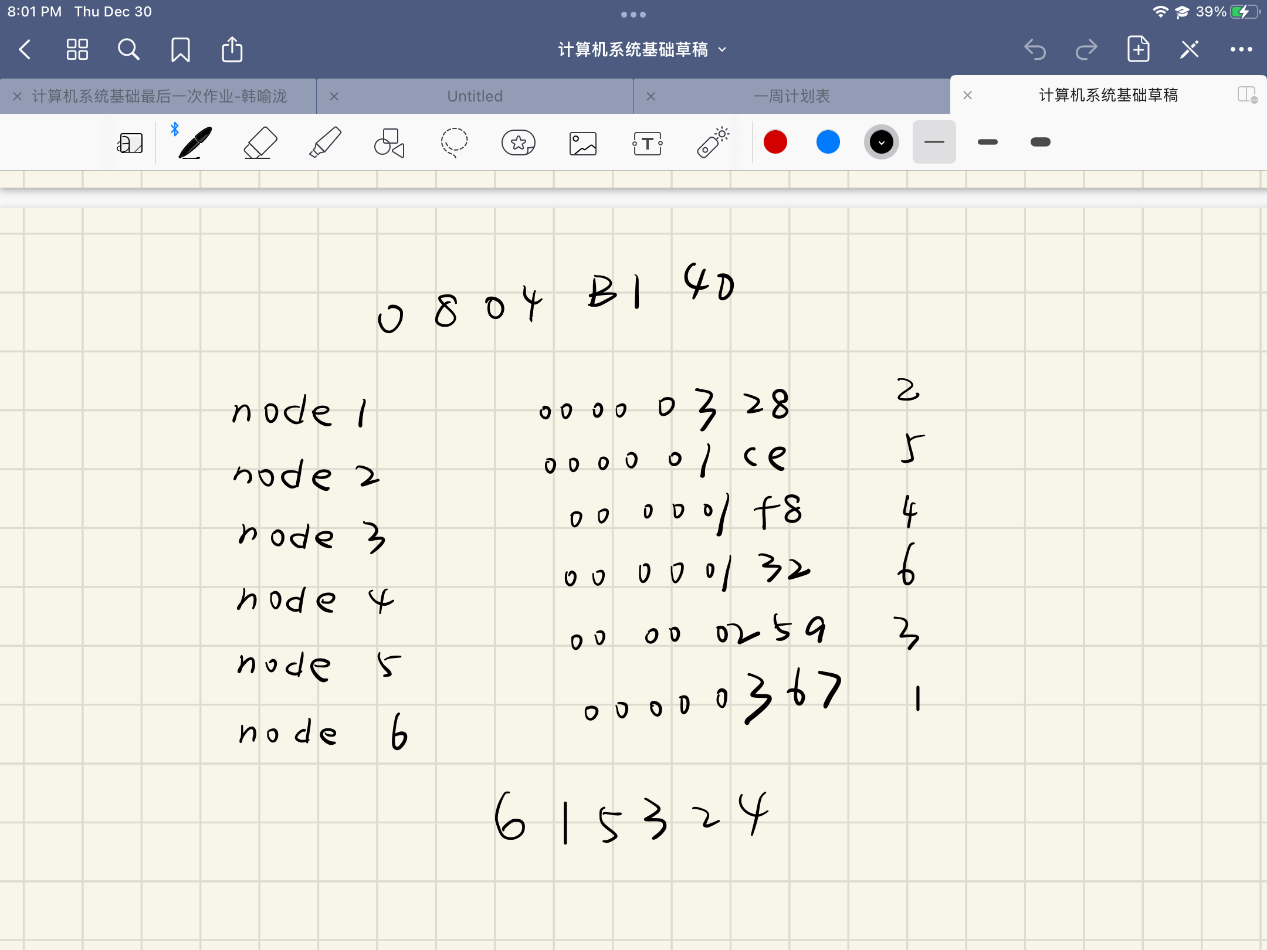 8:01 PM Thu Dec 30 39%
计算机系统基础草稿
计算机系统基础最后一次作业-韩喻泷 Untitled 一周计划表 计算机系统基础草稿
0 8 0 4 B 1 4 0
node 1 0000 0 3 28 2
node 2 0000 01 ce 5
node 3 00 0001 f8 4
node 4 00 0001 32 6
node 5 00 00 0259 3
node 6 00000367 1
6 1 5 3 2 4